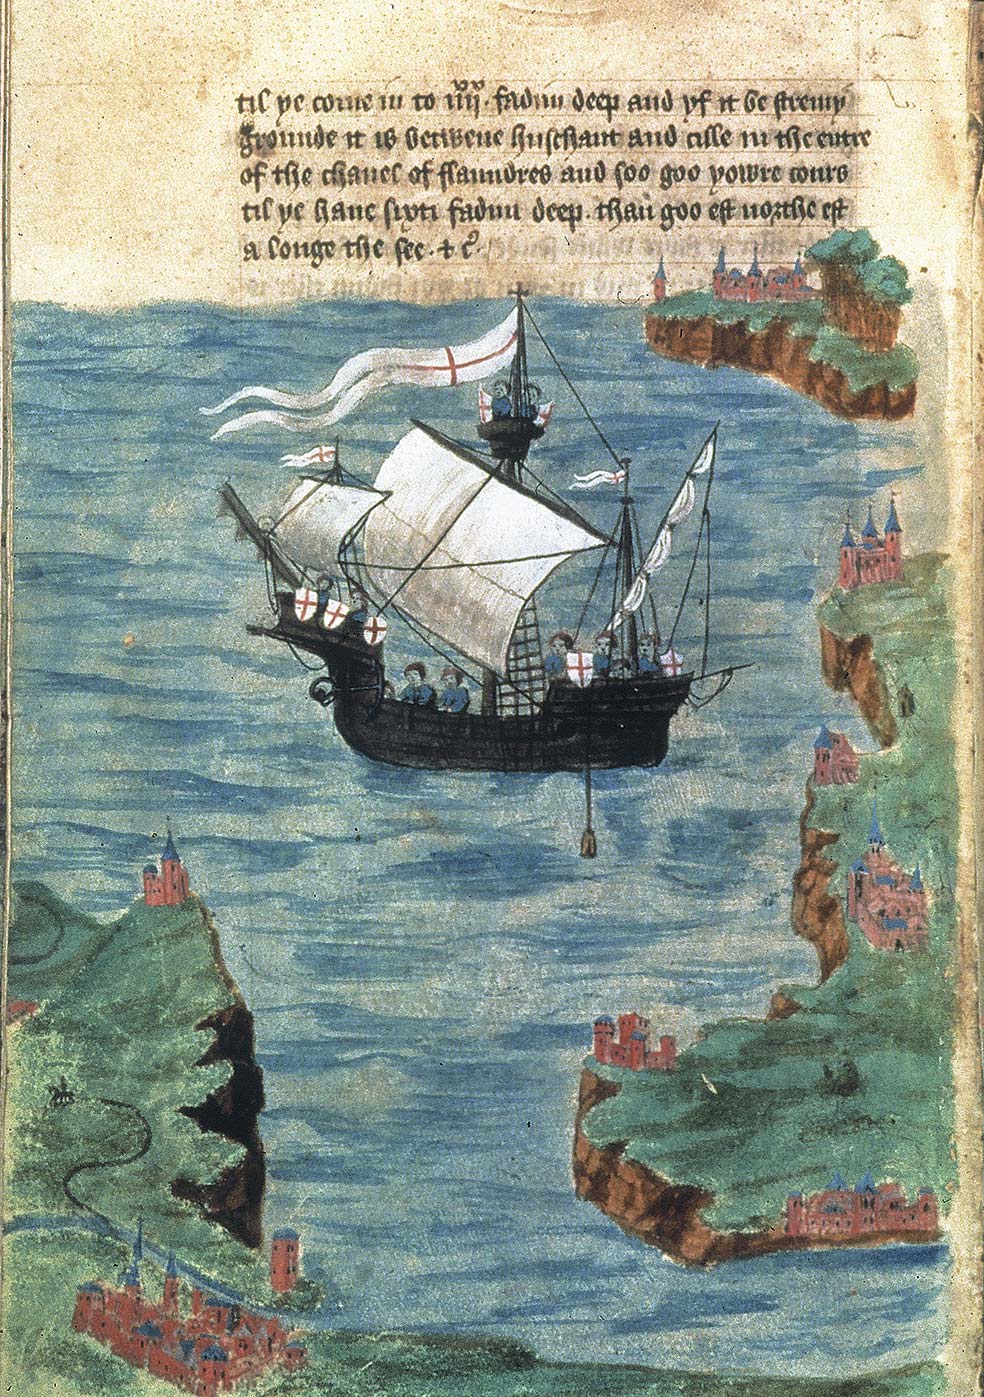 til ye come in to iiij. fadim deep and yf it be stremy
grounde it is betwene huschaunt and cille in the entre
of the chanel of flaundres and soo goo yowre cours
til ye haue sixti fadim deep. than goo est northe est
a longe the see. + c̉.